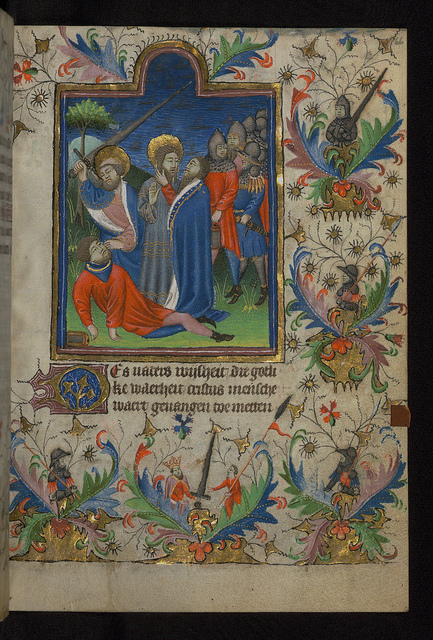 DEs uaders wijsheit die gotli
ke waerheit cristus mensche
waert geuangen toe metten